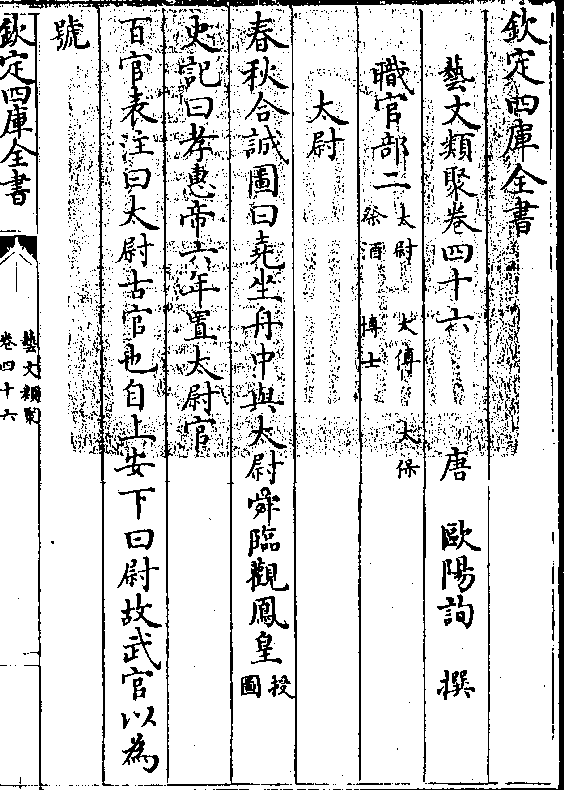 欽定四庫全書
藝文類聚卷四十六 唐 歐陽詢 撰
職官部二 太尉 太傅 太保 祭酒 博士
太尉
春秋合誠圖曰堯坐舟中與太尉舜臨觀鳳皇授圖
史記曰孝惠帝六年置太尉官
百官表注曰太尉古官也自上安下曰尉故武官以為
號
欽定四庫全書
藝文類聚
卷四十六